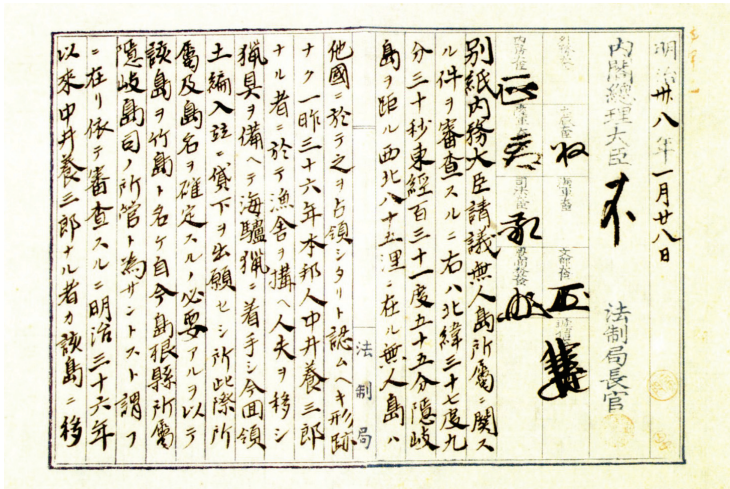 明治卅八年一月廿八日
内閣總理大臣
法制局長官
外務大臣
大蔵大臣
海軍大臣
文部大臣
内務大臣
陸軍大臣
司法大臣
別紙内務大臣請議無人島所屬ニ関ス
ル件ヲ審査スルニ右ハ北緯三十七度九
分三十秒東經百三十一度五十五分隠岐
島ヲ距ル西北八十五浬ニ在ル無人島ハ
他國ニ於テ之ヲ占領シタリト認ムヘキ形跡
ナク一昨三十六年本邦人中井養三郎
ナル者ニ於テ漁舎ヲ構ヘ人夫ヲ移シ
猟具ヲ備ヘテ海驢猟ニ着手シ今回領
土編入並ニ貸下ヲ出願セシ所此際所
屬及島名ヲ確定スルノ必要アルヲ以テ
該島ヲ竹島ト名ケ自今島根縣所屬
隠岐島司ノ所管ト為サントスト謂フ
ニ在リ依テ審査スルニ明治三十六年
以来中井養三郎ナル者カ該島ニ移
法制局